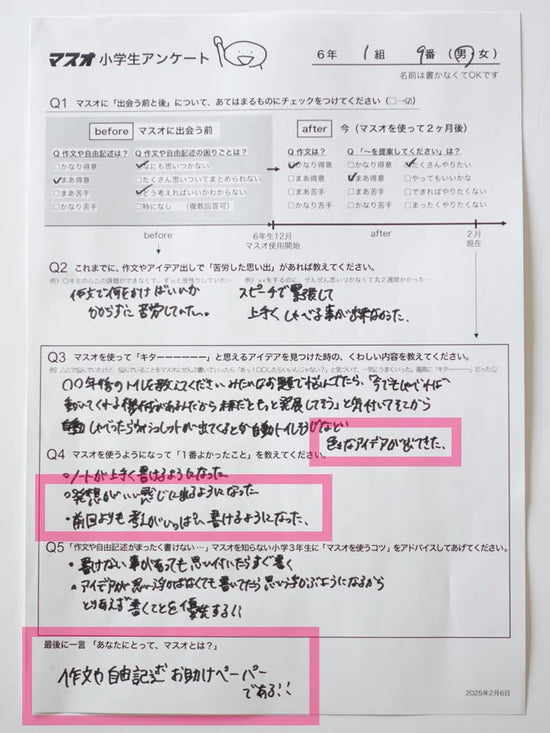 マスオ 小学生アンケート
6年 1組 9番 (男・女)
名前は書かなくてOKです
Q1 マスオに「出会う前と後」について、あてはまるものにチェックをつけてください(□→☑)
before マスオに出会う前
after 今(マスオを使って2ヶ月後)
Q 作文や自由記述は? Q 作文や自由記述の困りごとは?
□かなり得意 ☑なにも思いつかない
☑まあ得意 □たくさん思いついてまとめられない
□まあ苦手 ☑どう考えればいいかわからない
□かなり苦手 □特になし (複数回答可)
Q 作文は? Q「~を提案してください」は?
☑かなり得意 □かなり得意 ☑たくさんやりたい
□まあ得意 ☑まあ得意 □やってもいいかな
□まあ苦手 □まあ苦手 □できればやりたくない
□かなり苦手 □かなり苦手 □まったくやりたくない
before
6年生12月
マスオ使用開始
after
2月
現在
Q2 これまでに、作文やアイデア出しで「苦労した思い出」があれば教えてください。
作文で何をかけばいいか
わからずに苦労していた。
スピーチで緊張して
上手くしゃべる事が出来なかった。
Q3 マスオを使って「キターーーーーー」と思えるアイデアを見つけた時の、くわしい内容を教えてください。
〇〇年後のトイレを教えてくださいみたいなお題で悩んでたら、「今でもしゃべれば
動いてくれる機械があるんだから未来だともっと発展してそう」と気付いてそこから
自動
色々なアイデアがでてきた、
Q4 マスオを使うようになって「1番よかったこと」を教えてください。
・ノートが上手く書けるようになった
・発想がいい感じに出るようになった
・前回よりも考えがいっぱい書けるようになった、
Q5 「作文や自由記述がまったく書けない…」マスオを知らない小学3年生に「マスオを使うコツ」をアドバイスしてあげてください。
・書けない事があっても思い付いたらすぐ書く
・アイデアが思い浮かばなくても書いてたら思い浮かぶようになるから
とりあえず書くことを優先する!!
最後に一言「あなたにとって、マスオとは?」
作文や自由記述お助けペーパー
である!!
2025年2月6日